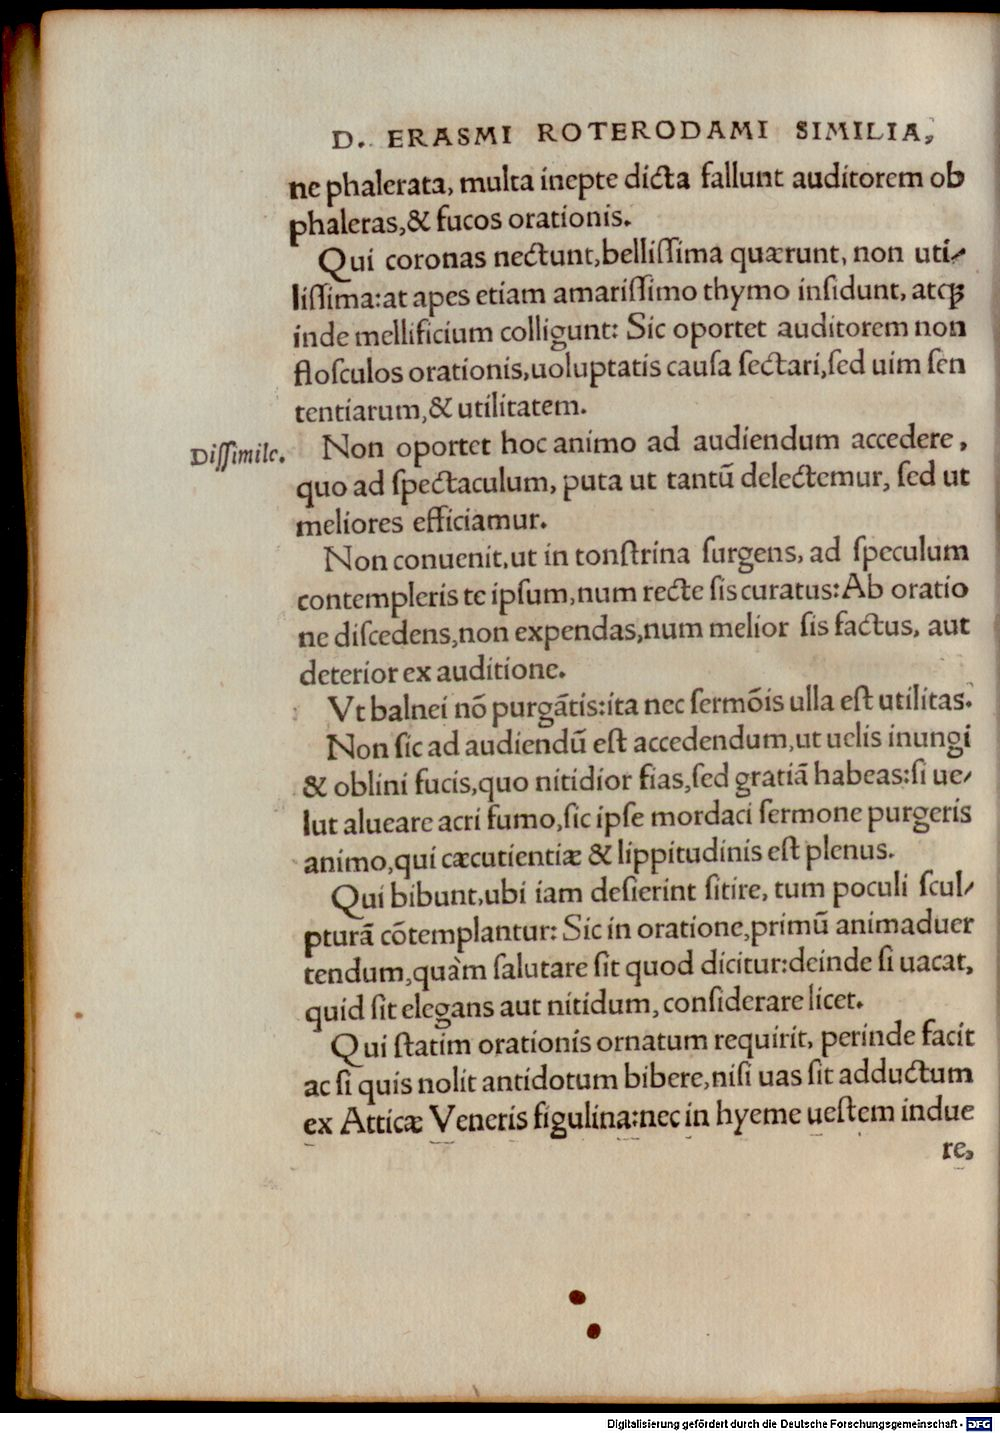 D. ERASMI ROTERODAMI SIMILIA,
ne phalerata, multa inepte dicta fallunt auditorem ob
phaleras,& fucos orationis.
Qui coronas nectunt,belliſſima quærunt, non uti-
liſſima:at apes etiam amariſſimo thymo inſidunt, atcꝗ
inde mellificium colligunt: Sic oportet auditorem non
floſculos orationis,uoluptatis cauſa ſectari,ſed uim ſen
tentiarum,& utilitatem.
Diſſimile.
Non oportet hoc animo ad audiendum accedere,
quo ad ſpectaculum, puta ut tantũ delectemur, ſed ut
meliores efficiamur.
Non conuenit,ut in tonſtrina ſurgens, ad ſpeculum
contempleris te ipſum,num recte ſis curatus: Ab oratio
ne diſcedens,non expendas,num melior ſis factus, aut
deterior ex auditione.
Vt balnei nõ purgãtis:ita nec ſermõis ulla eſt utilitas.
Non ſic ad audiendũ eſt accedendum,ut uelis inungi
& oblini fucis,quo nitidior fias,ſed gratiã habeas:ſi ue-
lut alueare acri fumo,ſic ipſe mordaci ſermone purgeris
animo,qui cæcutientiæ & lippitudinis eſt plenus.
Qui bibunt,ubi iam deſierint ſitire, tum poculi ſcul-
pturã cõtemplantur: Sic in oratione,primũ animaduer
tendum,quàm ſalutare ſit quod dicitur:deinde ſi uacat,
quid ſit elegans aut nitidum, conſiderare licet.
Qui ſtatim orationis ornatum requirit, perinde facit
ac ſi quis nolit antidotum bibere,niſi uas ſit adductum
ex Atticæ Veneris figulina:nec in hyeme ueſtem indue
re,
Digitalisierung gefördert durch die Deutsche Forschungsgemeinschaft - DFG